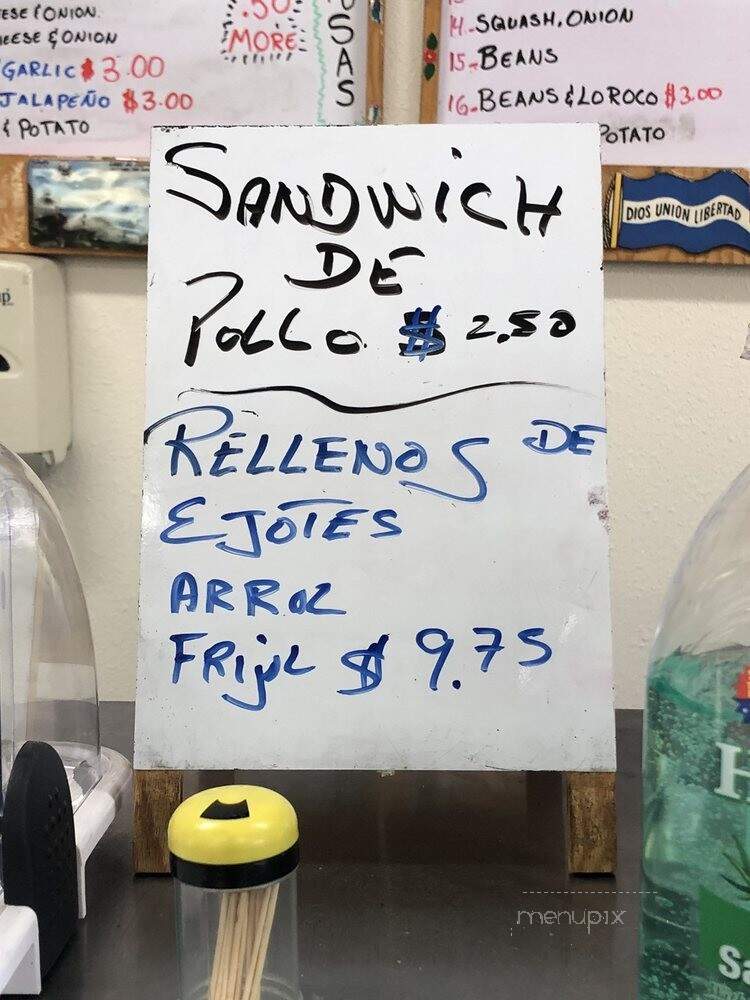 .50
MORE
USAS
EESE & ONION.
HEESE & ONION
GARLIC $3.00
JALAPEÑO $3.00
& POTATO
14-SQUASH, ONION
15-BEANS
16-BEANS & LOROCO $3.00
POTATO
DIOS UNION LIBERTAD
SANDWICH
DE
POLLO $ 2.50
RELLENOS DE
EJOTES
ARROZ
FRIJOL $ 9.75
menupix
H
Sa